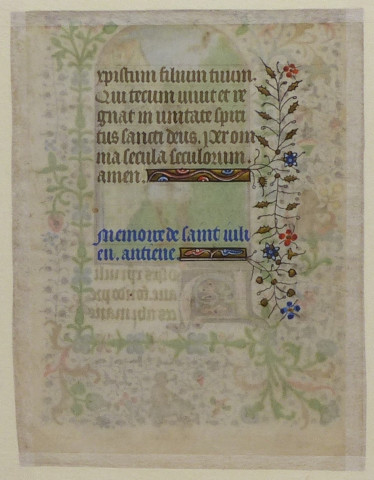 xpistum filium tuum.
Qui tecum vivit et re
gnat in unitate spiri
tus sancti deus. Per om
nia secula seculorum.
amen.
Memoire de saint iuli
en. antiene.